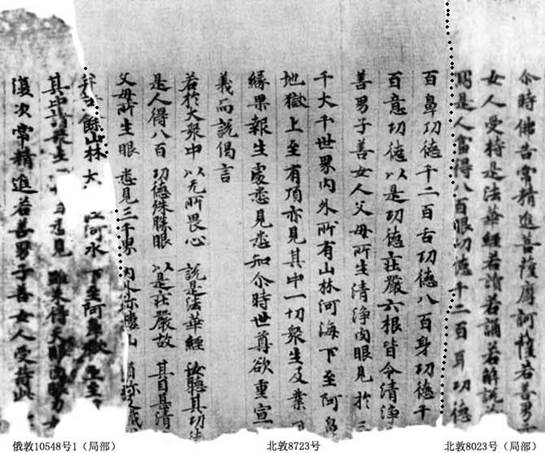 尒時佛告常精進菩薩摩訶薩若善男
女人受持是法華經若讀若誦若解說
是人當得八百眼功德千二百耳功德
百鼻功德千二百舌功德八百身功德千
百意功德以是功德莊嚴六根皆令清淨
善男子善女人父母所生清淨肉眼見於三
千大千世界內外所有山林河海下至阿鼻
地獄上至有頂亦見其中一切衆生及業
緣果報生處悉見悉知尒時世尊欲重宣
義而說偈言
若於大衆中 以无所畏心 說是法華經 汝聽其功
是人得八百 功德殊勝眼 以是莊嚴故 其目甚清
父母所生眼 悉見三千界 內外弥樓山 須弥及
餘山林 大 江河水 下至阿鼻獄
其中諸衆生 悉見 雖未得天眼 肉眼力
復次常精進若善男子善女人受持此
俄敦10548号1（局部）
北敦8723号
北敦8023号（局部）